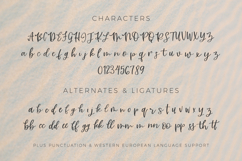 CHARACTERS
ABCDEFGHIJKLMNOPQRSTUVWXYZ
abcdefghijklmnopqrstuvwxyz
0123456789
ALTERNATES & LIGATURES
abcdefghijklmnopqrstuvwxyz
bb cc dd ee ff gg hh ll mm nn oo pp ss th tt
PLUS PUNCTUATION & WESTERN EUROPEAN LANGUAGE SUPPORT